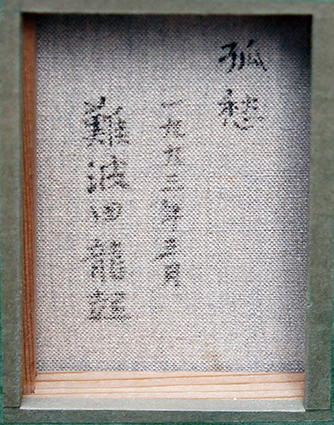 孤愁
一九五三年三月
難波田龍起